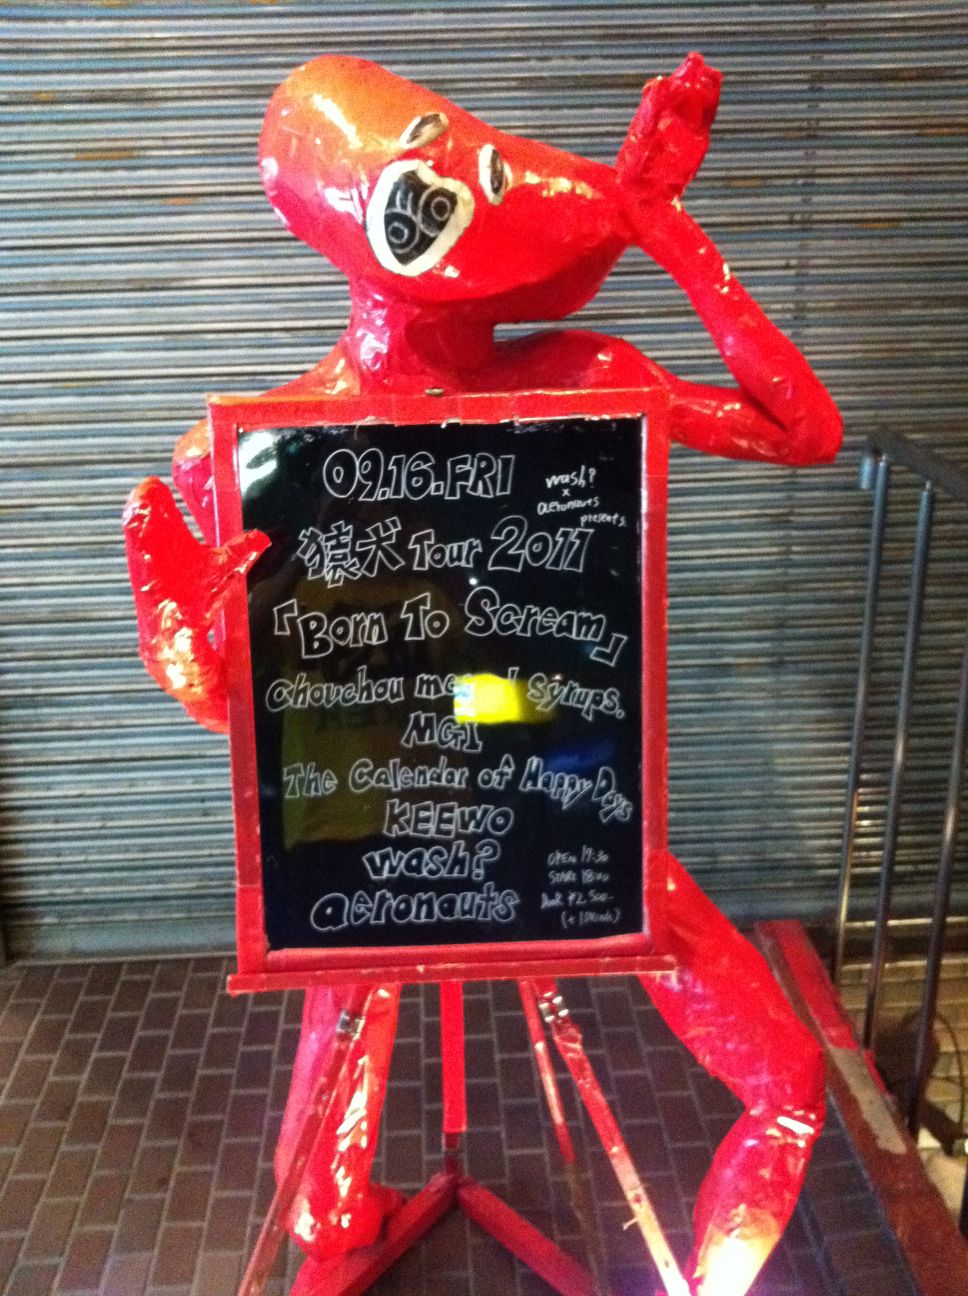 09.16.FRI
wash?
x
aeronauts
presents
猿犬 Tour 2011
「Born To Scream」
chouchou syrups.
MGI
The Calendar of Happy Days
KEEWO
wash?
aeronauts
OPEN 17:30
START 18:00
¥2,500-
(+1DRINK)